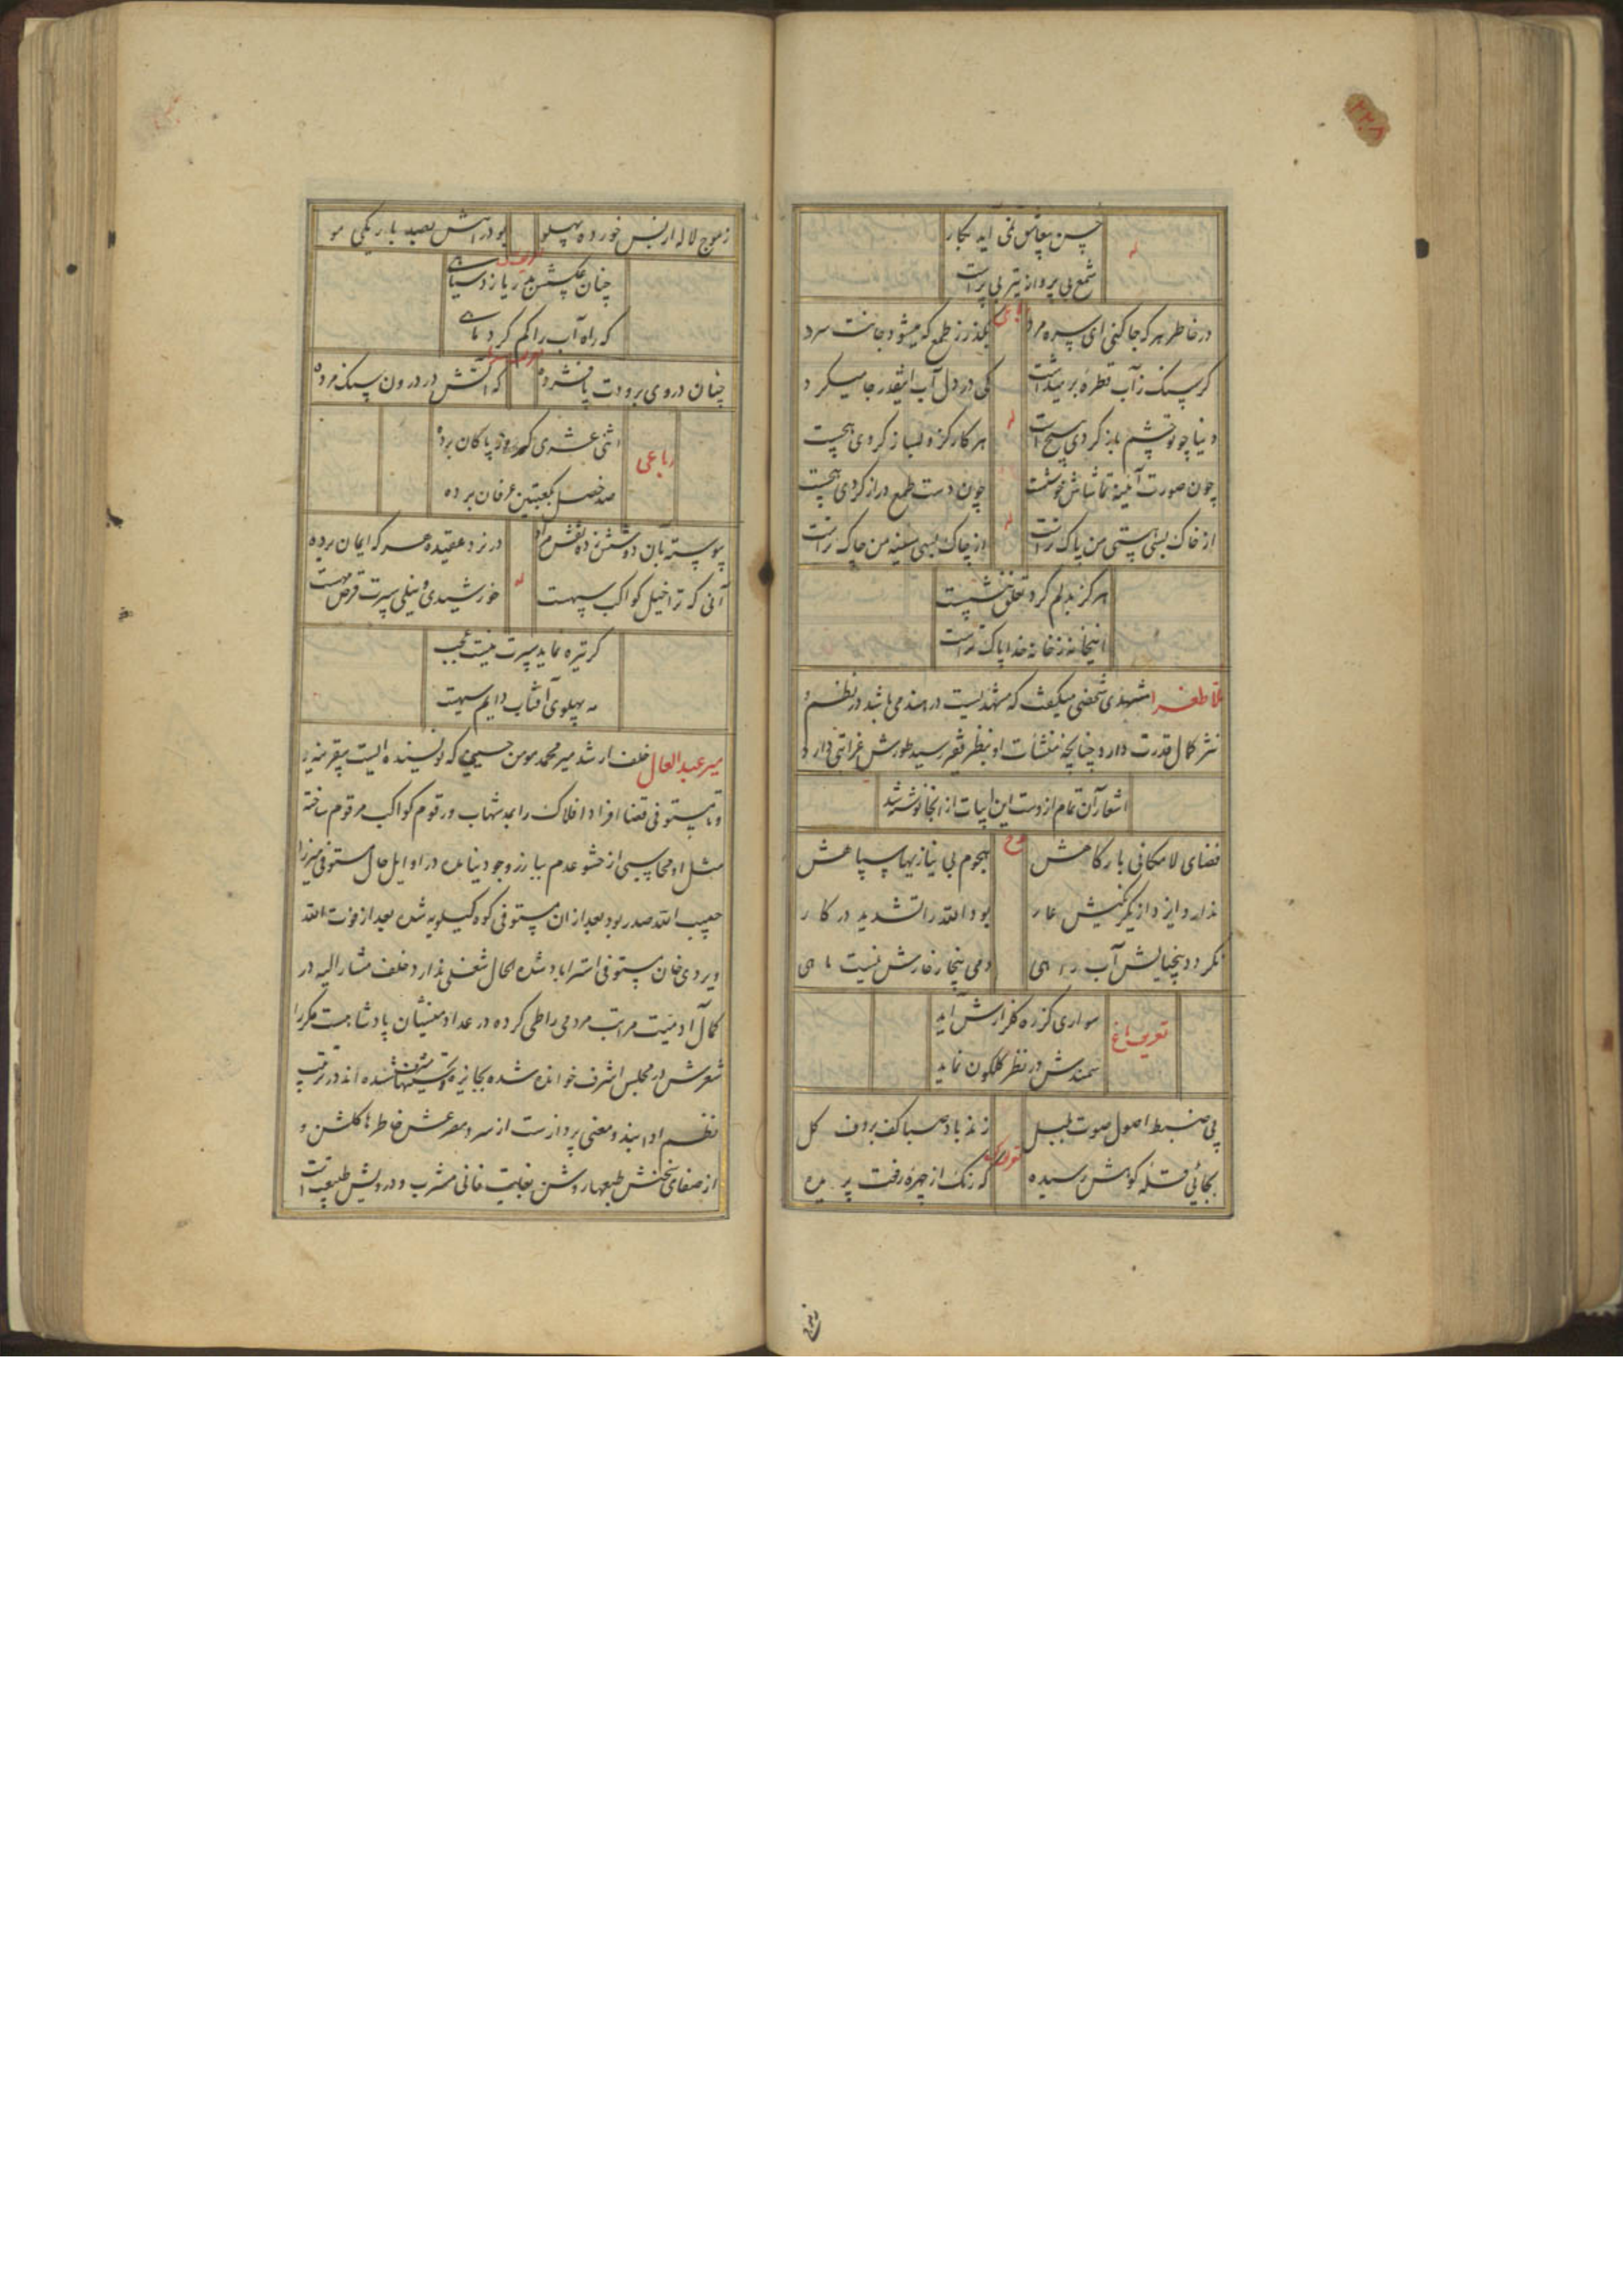 ۲۲۸
له
حسن بیعاشق نمی آید بکار
شمع بی پروانه تیر بی پر است
در خاطر هر که جا کنی ای سره مرد
بگذر ز طمع که میشود جانت سرد
گر سنگ ز آب قطره برمیداشت
کی در دل آب اینقدر جا میکرد
له
دنیا چو تو چشم باز کردی هیچ است
هر کار کزو بساز کردی هیچست
چون صورت آینه تماشاش خوشست
چون دست طمع دراز کردی هیچست
له
از خاک بسی هستی من پاک تر است
از چاک بسی سینه من چاک تر است
هرگز بدلم گرد تعلق ننشست
اینخانه ز خانه خدا پاک تر است
ملا طغرا مشهدی شخصی میگفت که مشهدیست در هند می باشد در نظم و
نثر کمال قدرت دارد چنانچه منشآت او بنظر فقیر رسید طورش غرابتی دارد و
اشعار آن تمام ازدست این ابیات از آنجا نوشته شد
مدح
فضای لامکانی بارگاهش
هجوم بی نیازیها سپاهش
ندارد ایزد از یکرنگیش عار
بود الله را تشدید در کار
نگردد بیخیالش آب راهی
دمی بیخار خارش نیست ماهی
تعریف باغ
سواری کز ره گلزارش آید
سمندش در نظر گلگون نماید
پی ضبط اصول صوت بلبل
زند باد صبا کف بر دف گل
بجائی قله کوهش رسیده
که رنگ از چهره رفعت پریده
ز موج لاله از بس خورده پهلو
بود راهش بصد باریکی مو
چنان عکسش در یا زد سیاهی
که راه آب را گم کرد ماهی
چنان در وی برودت پا فشرده
که آتش در درون سنگ مرده
رباعی
اثنی عشری که روزه پاکان برده
صد خصل بکعبتین عرفان برده
پیوسته بآن دو شش زده نقش مراد
در نرد عقیده هر که ایمان برده
له
آنی که ترا خیل کواکب سپهست
خورشیدی و نیلی سپرت قرص مهست
گر تیره نماید سپرت نیست عجب
مه پهلوی آفتاب دایم سیهست
میر عبدالعال خلف ارشد میر محمد مومن حسینی که نویسنده ایست بیقرینه و
تا مستوفی قضا افراد افلاک را بمد شهاب و رقوم کواکب مرقوم ساخته
مثل او محاسبی از حشو عدم ببارز وجود نیامده در اوایل حال مستوفی میرزا
حبیب الله صدر بود بعد از ان مستوفی کوه کیلویه شده بعد از فوت الله
ویردی خان مستوفی استراباد شده الحال شغلی ندارد خلف مشار الیه در
کمال آدمیت مراتب مردمی را طی کرده در عداد منشیان پادشاهیست مکررا
شعرش در مجلس اشرف خوانده شده بجایزه و تحسینها مشرف شده اند در ترتیب
نظم ادابند و معنی پردازست از سرو مصرعش خاطرها گلشن و
از صفای سخنش طبعها روشن بغایت فانی مشرب و درویش طبیعت است